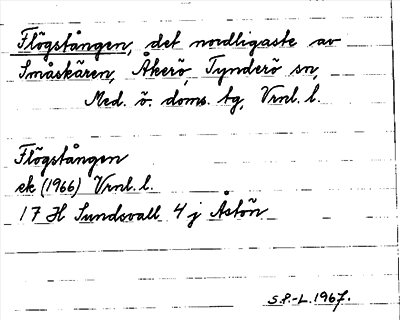 Flögstången, det nordligaste av
Småskären, Åkerö, Tynderö sn,
Med. ö. doms. tg, Vrnl. l.
Flögstången
ek (1966) Vrnl. l.
17 H Sundsvall 4 j Åstön
S.P.-L. 1967.